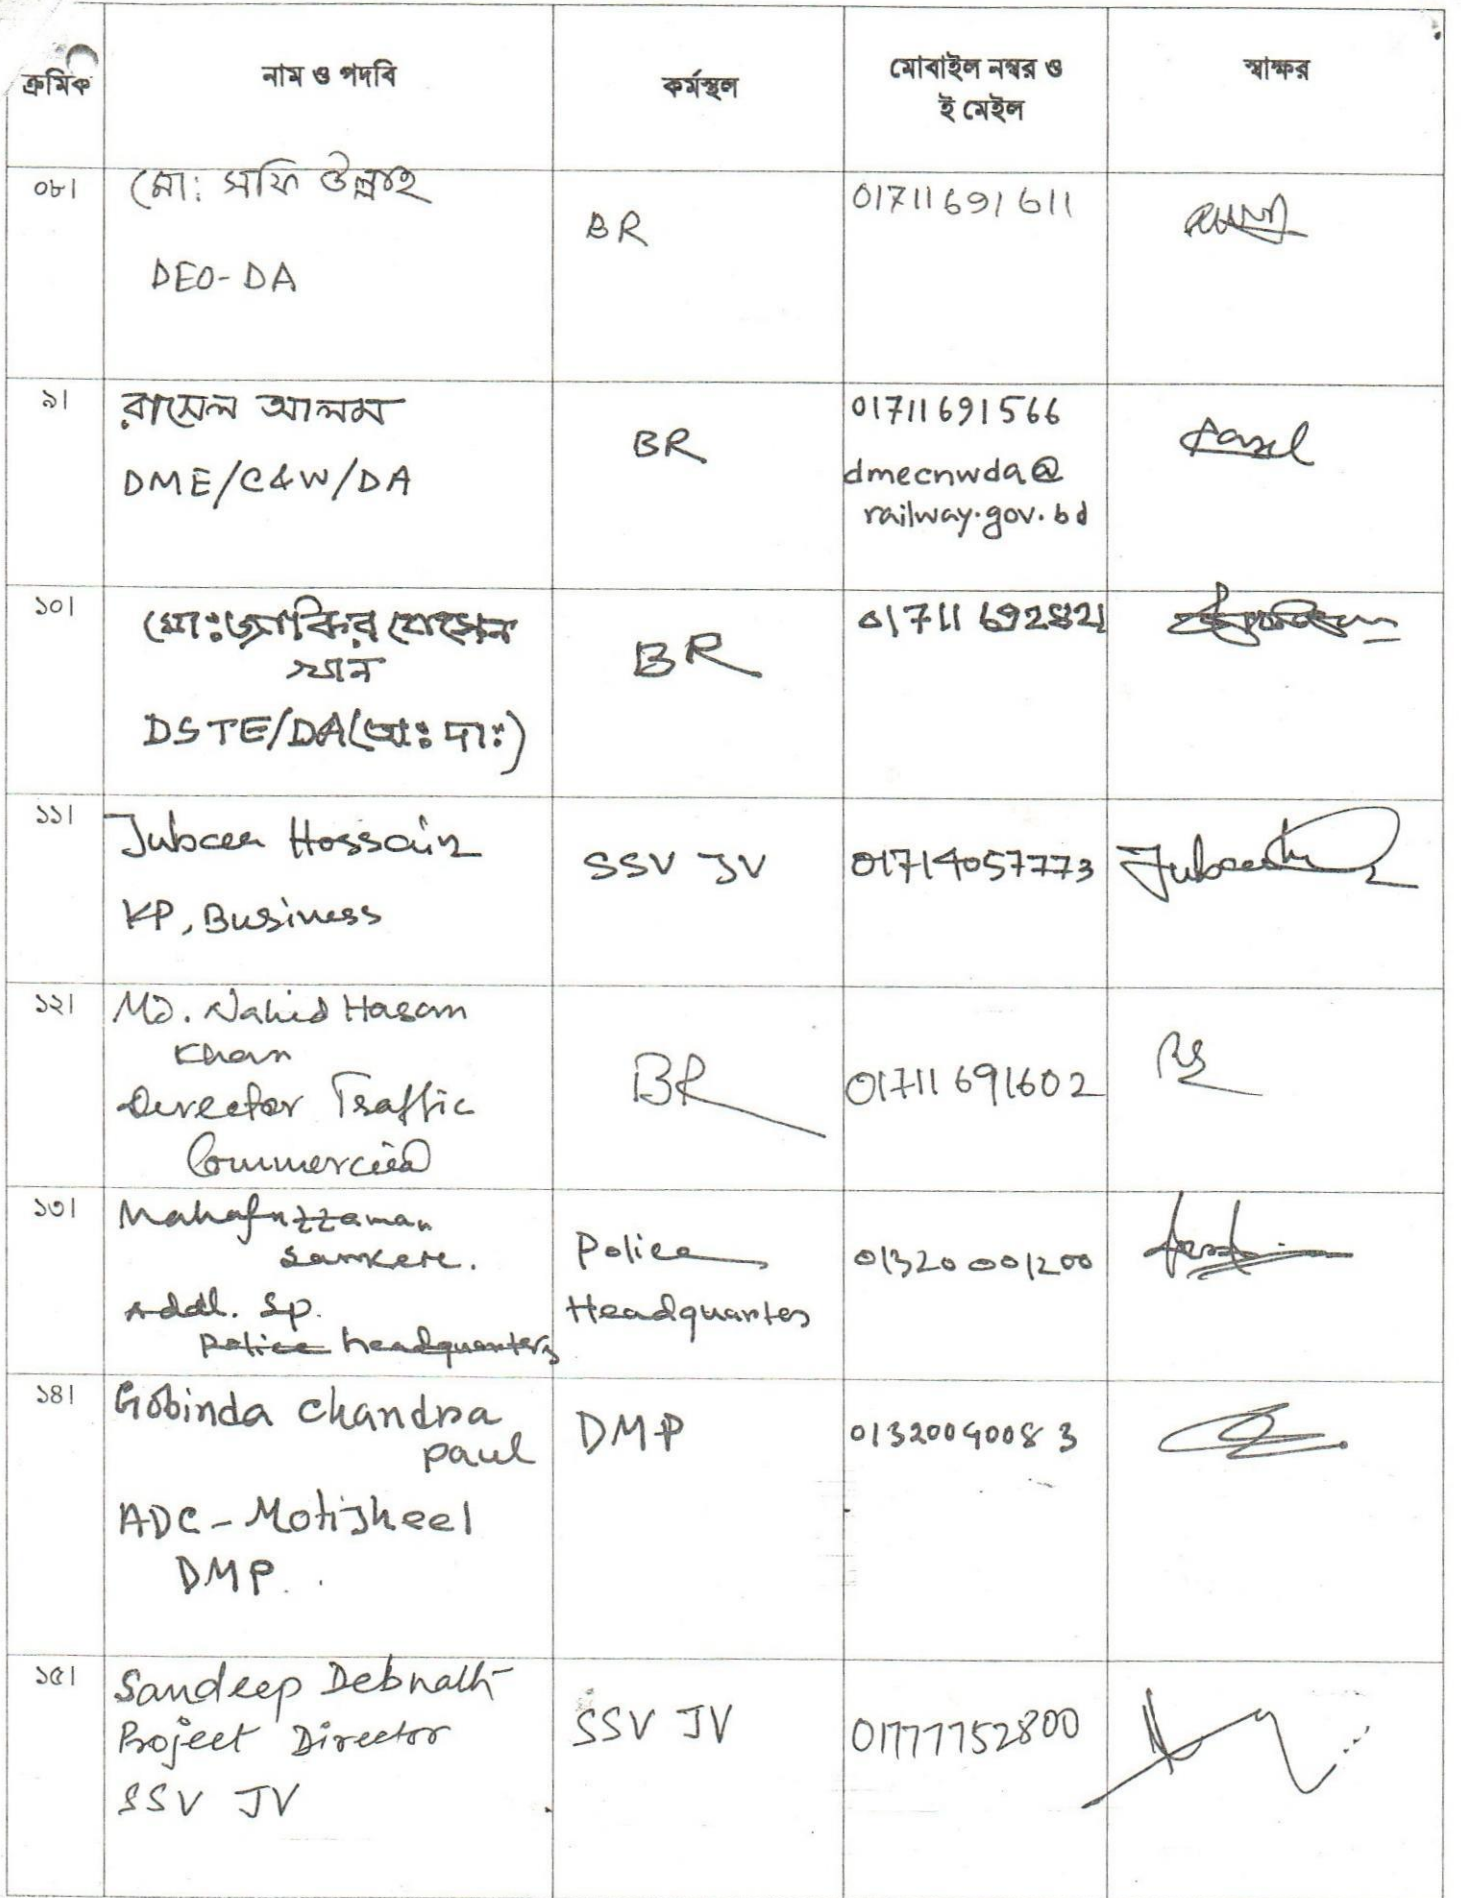 ক্রমিক
নাম ও পদবি
কর্মস্থল
মোবাইল নম্বর ও
ই মেইল
স্বাক্ষর
০৮।
মো: সফি উল্লাহ
DEO-DA
BR
01711691611
৯।
রাসেল আলম
DME/C&W/DA
BR
01711691566
dmecnwda@
railway.gov.bd
Rasel
১০।
মোঃ জাকির হোসেন
খান
DSTE/DA(অঃ দাঃ)
BR
01711692821
১১।
Jubaer Hossain
KP, Business
SSV JV
01714057773
১২।
MD. Nahid Hasan
Khan
Director Traffic
Commercial
BR
01711691602
১৩।
Mahafuzzaman
Sarker.
Addl. SP.
Police headquarters
Police
Headquarters
01320001200
১৪।
Gobinda Chandra
Paul
ADC - Motijheel
DMP.
DMP
01320040083
১৫।
Sandeep Debnath
Project Director
SSV JV
SSV JV
01777752800